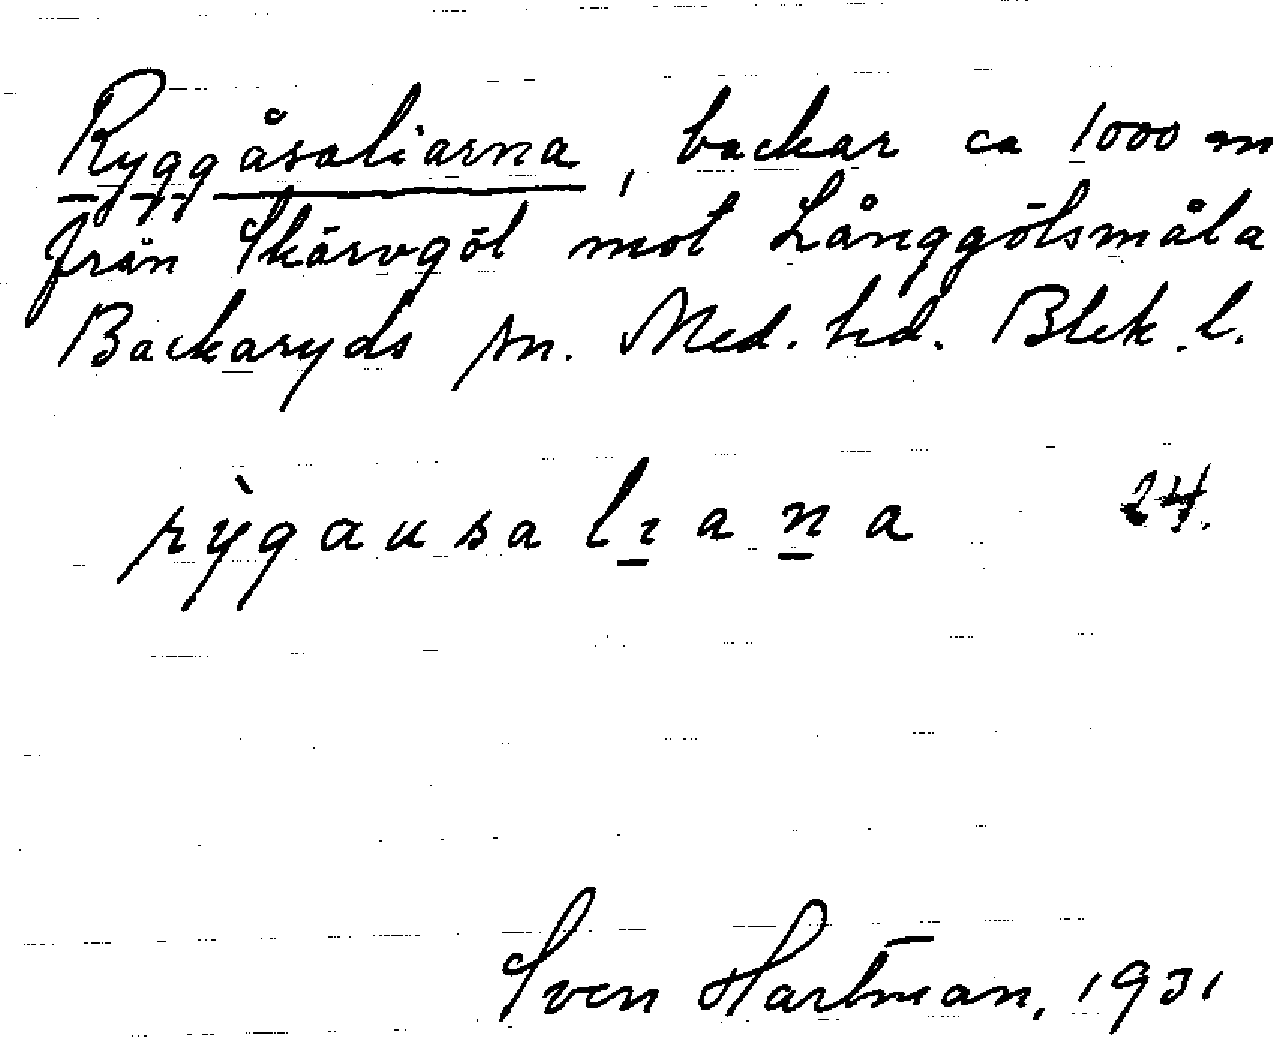 Ryggåsaliarna, backar ca 1000 m
från Skärvgöl mot Långgölsmåla
Backaryds sn. Med. hd. Blek. l.
rỳgausalıana 24.
Sven Hartman, 1931